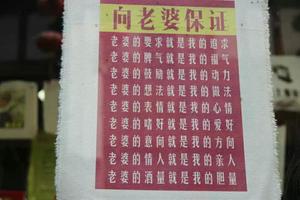 向老婆保证
老婆的要求就是我的追求
老婆的脾气就是我的福气
老婆的鼓励就是我的动力
老婆的想法就是我的做法
老婆的表情就是我的心情
老婆的嗜好就是我的爱好
老婆的意向就是我的方向
老婆的情人就是我的亲人
老婆的酒量就是我的胆量